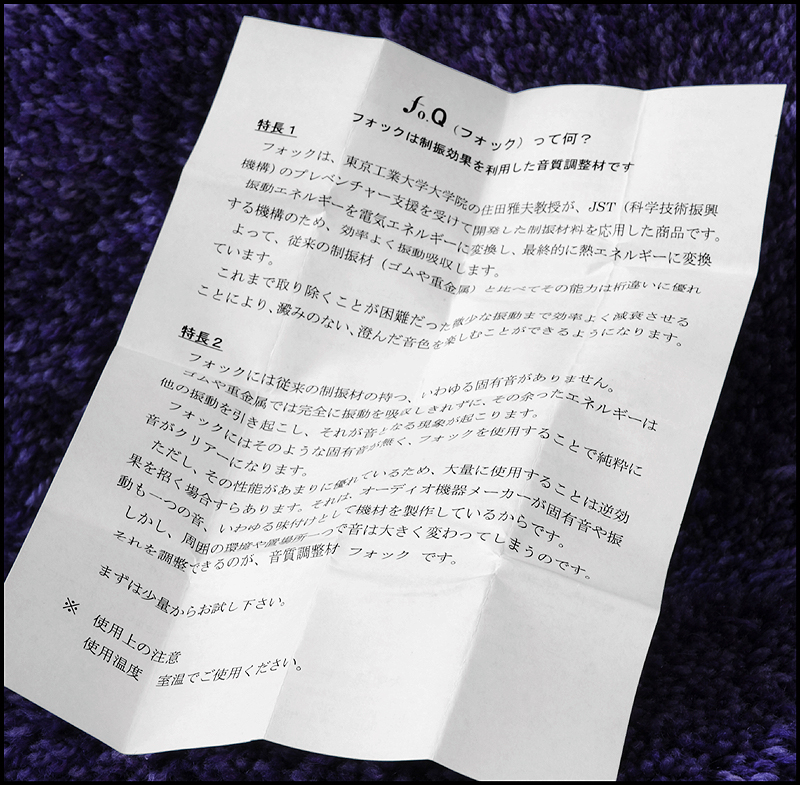 fo.Q（フォック）って何？
フォックは制振効果を利用した音質調整材です
特長１
フォックは、東京工業大学大学院の住田雅夫教授が、JST（科学技術振興
機構）のプレベンチャー支援を受けて開発した制振材料を応用した商品です。
振動エネルギーを電気エネルギーに変換し、最終的に熱エネルギーに変換
する機構のため、効率よく振動吸収します。
よって、従来の制振材（ゴムや重金属）と比べてその能力は桁違いに優れ
ています。
これまで取り除くことが困難だった微少な振動まで効率よく減衰させる
ことにより、澱みのない、澄んだ音色を楽しむことができるようになります。
特長２
フォックには従来の制振材の持つ、いわゆる固有音がありません。
ゴムや重金属では完全に振動を吸収しきれずに、その余ったエネルギーは
他の振動を引き起こし、それが音となる現象が起こります。
フォックにはそのような固有音が無く、フォックを使用することで純粋に
音がクリアーになります。
ただし、その性能があまりに優れているため、大量に使用することは逆効
果を招く場合すらあります。それは、オーディオ機器メーカーが固有音や振
動も一つの音、いわゆる味付けとして機材を製作しているからです。
しかし、周囲の環境や置場所一つで音は大きく変わってしまうのです。
それを調整できるのが、音質調整材 フォック です。
まずは少量からお試し下さい。
※ 使用上の注意
使用温度 室温でご使用ください。